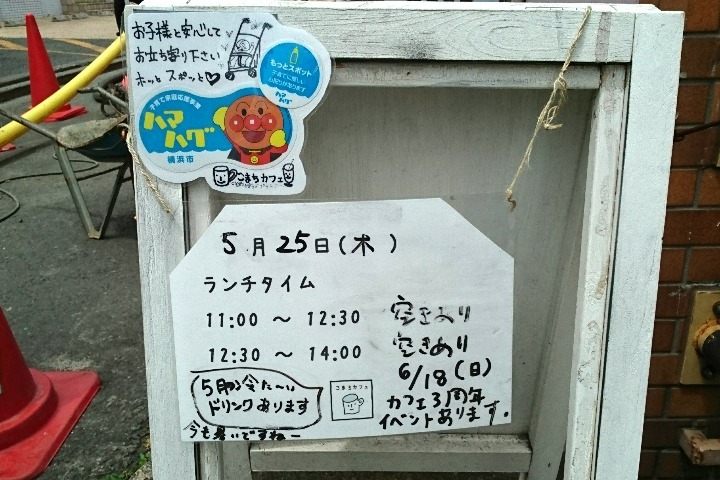 お子様と安心して
お立ち寄り下さい
ホッとスポット♡
もっとスポット
子育て家庭応援事業
ハマ
ハグ
横浜市
ハマハグ
こまちカフェ
5月25日(木)
ランチタイム
11:00 ～ 12:30 空きあり
12:30 ～ 14:00 空きあり
6/18(日)
カフェ3周年
イベントあります。
5月の冷た〜い
ドリンクあります
こまちカフェ
今日も暑いですねー